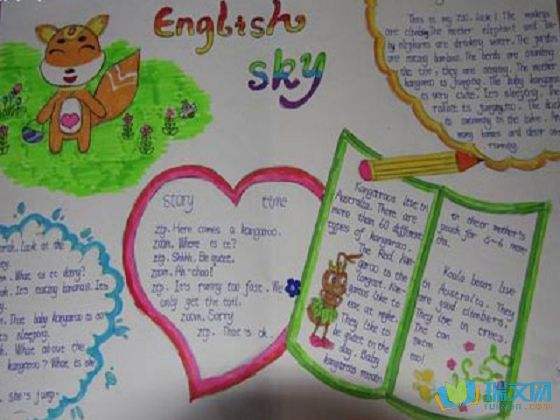 English
sky
This is my zoo. Look! The monkeys
are climbing. The mother elephant and
elephants are drinking water. The
are eating bamboos. The birds are
in the tree, they are singing. The mother
kangaroo is jumping. The baby kangaroo
is very cute. It's sleeping.
is jumping, too. The
is swimming in the lake.
and deer are
running.
story time
zip. Here comes a kangaroo.
zoom. Where is it?
zip. Shhh. Be quiet.
zoom. Ah-choo!
zip. It's runny too fast. We
only get the tail.
zoom. Sorry
zip. That's ok.
Look at the
What is it doing?
It's eating bananas. It's
That baby kangaroo is so
It's sleeping.
What about the
kangaroo? What is she
She's jump.
Kangaroos live in
Australia. There are
more than 60 different
types of kangaroo.
The Red Kan-
garoo is the
largest. Kan-
garoos like to
move at night.
They like to
be quiet in the
day. Baby
kangaroos
in their mother's
pouch for 5-6 mon-
ths.
Koala bears live
in Australia. They
are good climbers.
They live in trees.
The can
swim
too!
瑞文网
ruiwen.com